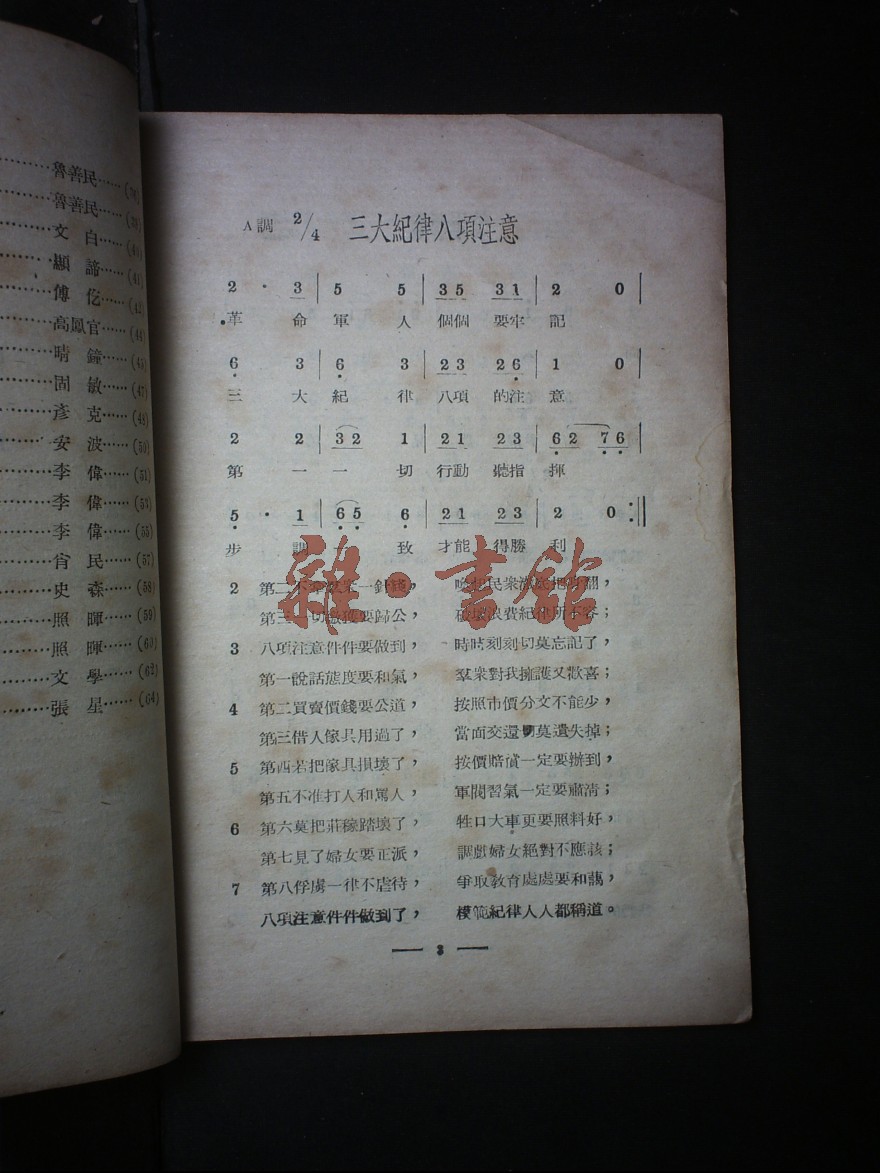 魯善民……
魯善民……
文　白……
顯　諦……
傅　仡……(42)
高鳳官……(44)
晴　鐘……(45)
固　敏……(47)
彥　克……(48)
安　波……(50)
李　偉……(51)
李　偉……(53)
李　偉……(55)
肖　民……(57)
史　森……(58)
照　暉……(59)
照　暉……(60)
文　學……(62)
張　星……(64)
A調 2/4 三大紀律八項注意
2 · 3 | 5 5 | 3 5 3 1 | 2 0 |
革命軍人個個要牢記
6 3 | 6 3 | 2 3 2 6 | 1 0
三大紀律八項的注意
2 2 | 3 2 1 | 2 1 2 3 | 6 2 7 6 |
第一一切行動聽指揮
5 · 1 | 6 5 6 | 2 1 2 3 | 2 0 :||
步調一致才能得勝利
2 第二不　　衆一針綫，　　民衆　　把我
第三一切繳獲要歸公，　破壞浪費紀律所不容；
3 八項注意件件要做到，　時時刻刻切莫忘記了，
第一說話態度要和氣，　羣衆對我擁護又歡喜；
4 第二買賣價錢要公道，　按照市價分文不能少，
第三借人傢具用過了，　當面交還切莫遺失掉；
5 第四若把傢具損壞了，　按價賠償一定要辦到，
第五不准打人和罵人，　軍閥習氣一定要肅清；
6 第六莫把莊稼踏壞了，　牲口大車更要照料好，
第七見了婦女要正派，　調戲婦女絕對不應該；
7 第八俘虜一律不虐待，　爭取教育處處要和藹，
八項注意件件做到了，　模範紀律人人都稱道。
— 3 —
雜·書館